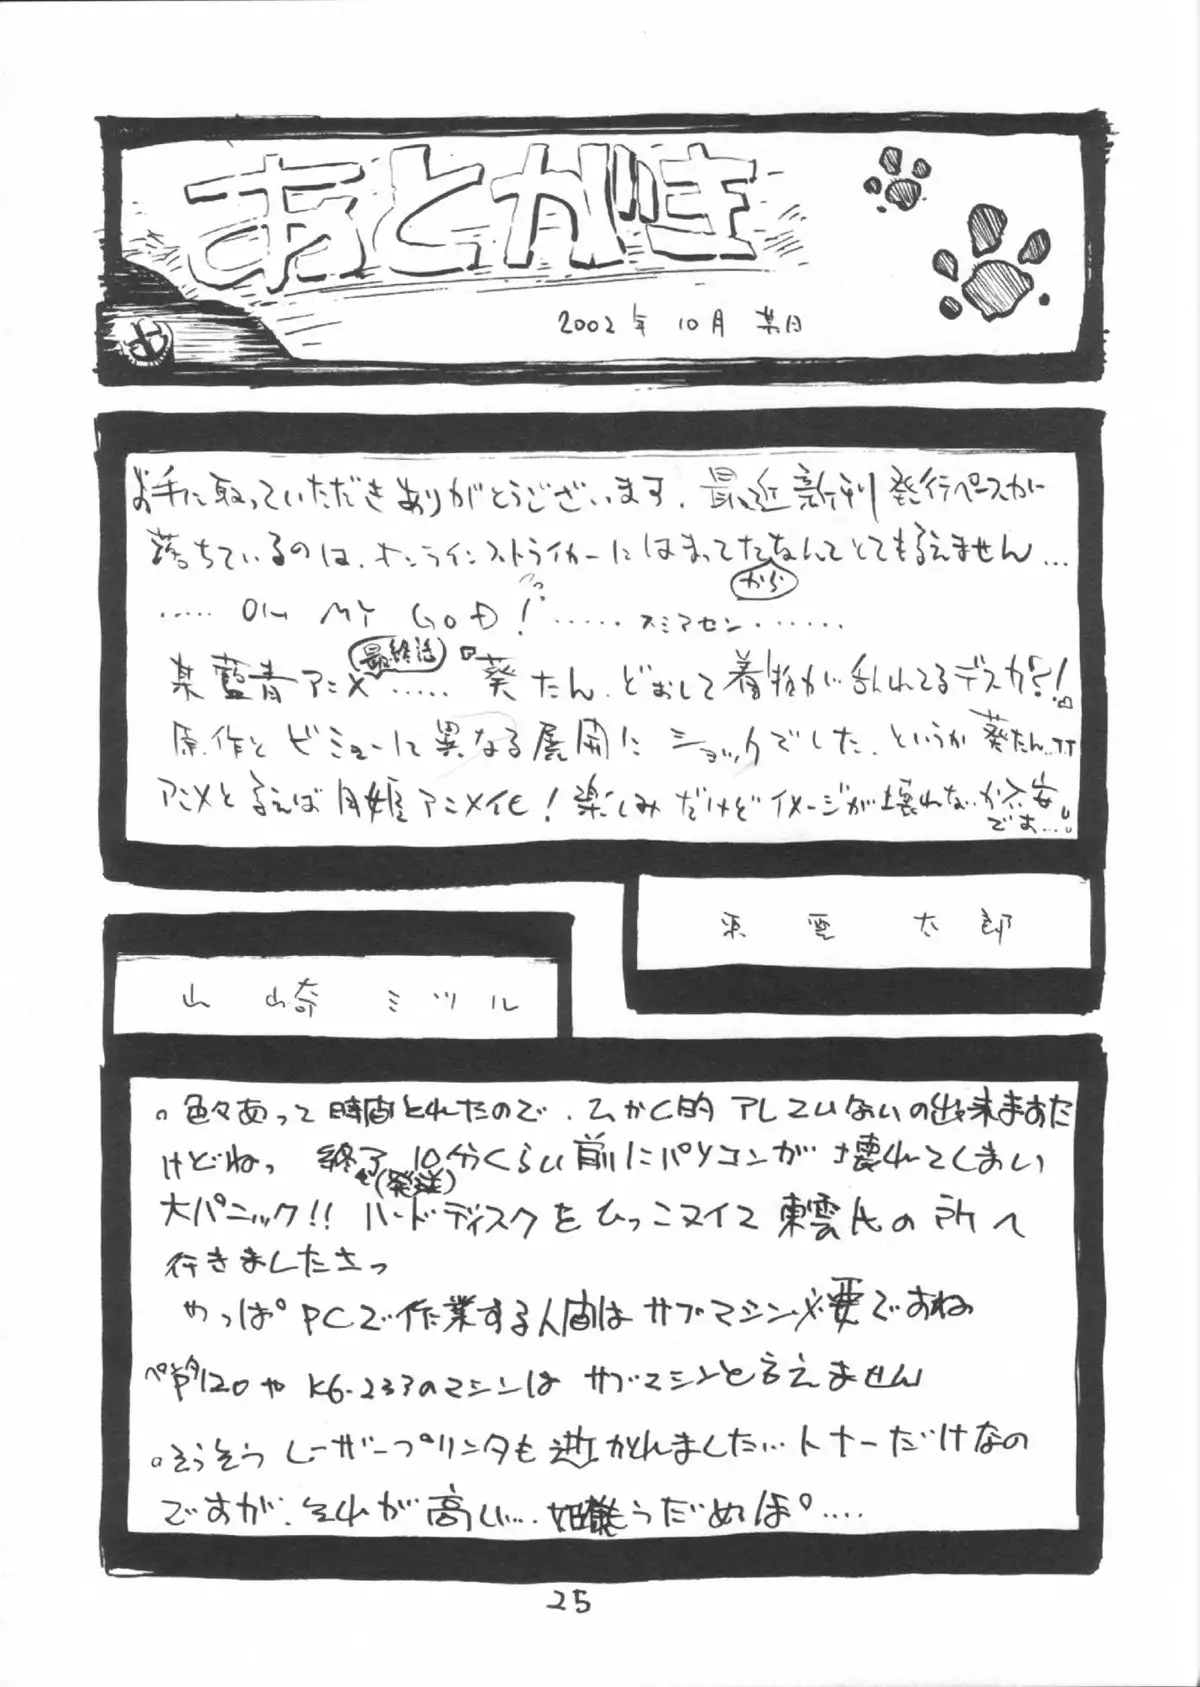 あとがき
2002年 10月 某日
お手に取っていただきありがとうございます. 最近新刊発行ペースが
落ちているのは、オンラインストライカーにはまってたからなんてとても言えません…
…… OH MY GOD! …… スミマセン ……
某藍青アニメ最終話 …… 葵たん、どおして着物が乱れてるデスカ?!
原作とビミョーに異なる展開にショックでした. というか葵たん…
アニメと言えば月姫アニメ化! 楽しみだけどイメージが壊れないか不安
ですよ…
東雲太郎
山崎ミツル
。色々あって時間とれたので、
けどねっ 終了(発送) 10分くらい前にパソコンが壊れてしまい
大パニック!! ハードディスクをひっこヌイて東雲氏の所へ
行きましたさっ
やっぱPCで作業する人間はサブマシン必要ですね
120や K6-233のマシンはサブマシンと言えません
。そうそうレーザープリンタも逝かれました… トナーだけなの
ですが、それが高い…. もうだめぽ….
25